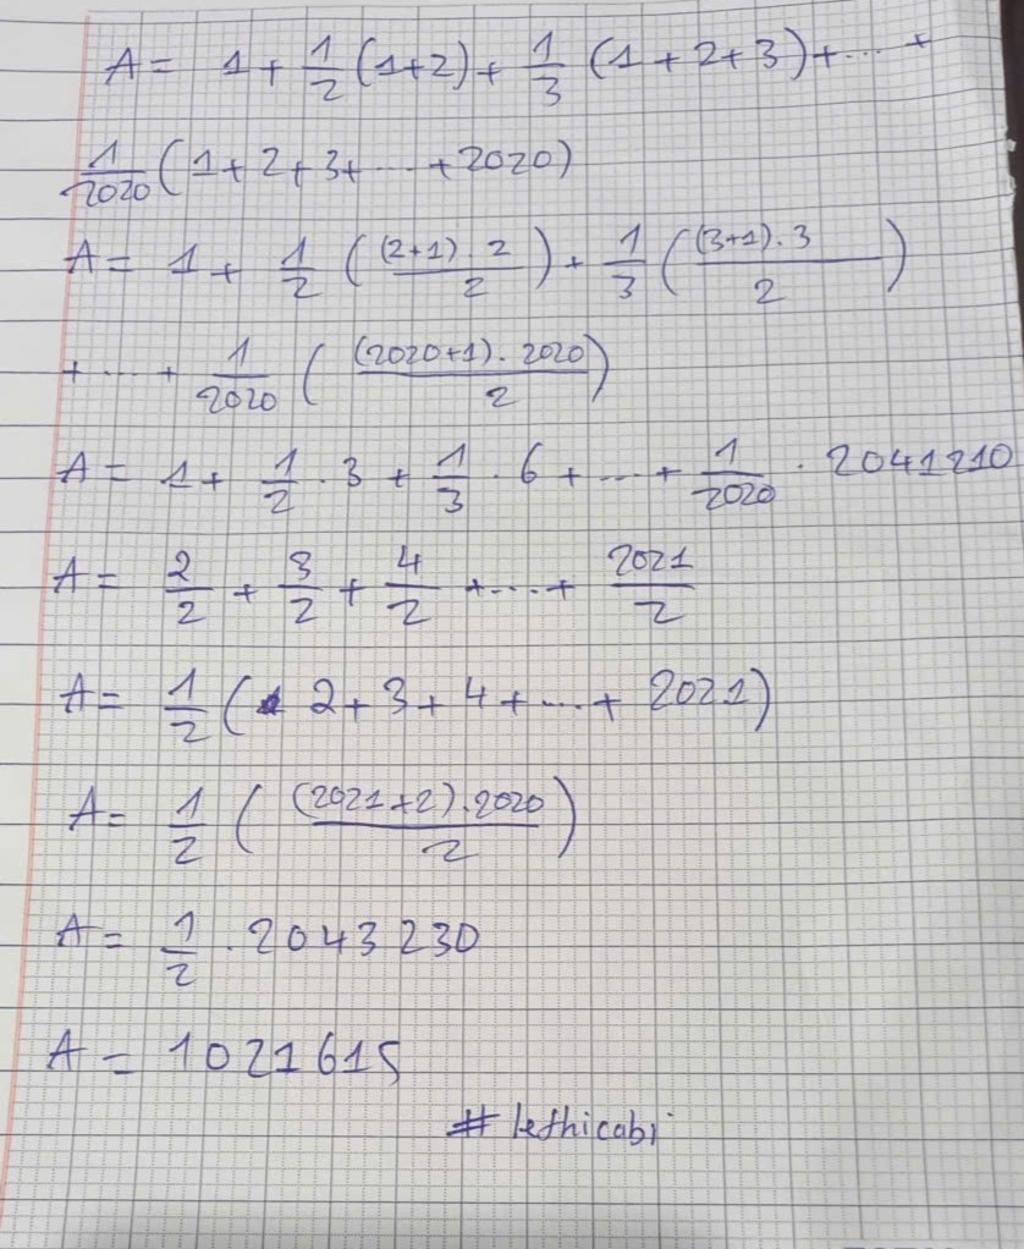 A = 1 + 1/2 (1+2) + 1/3 (1+2+3) + ... +
1/2020 (1+2+3+ ... +2020)
A = 1 + 1/2 ((2+1).2/2) + 1/3 ((3+1).3/2)
+ ... + 1/2020 ((2020+1).2020/2)
A = 1 + 1/2 . 3 + 1/3 . 6 + ... + 1/2020 . 2041210
A = 2/2 + 3/2 + 4/2 + ... + 2021/2
A = 1/2 (2+3+4+ ... + 2021)
A = 1/2 ((2021+2).2020/2)
A = 1/2 . 2043230
A = 1021615
# lethicabi